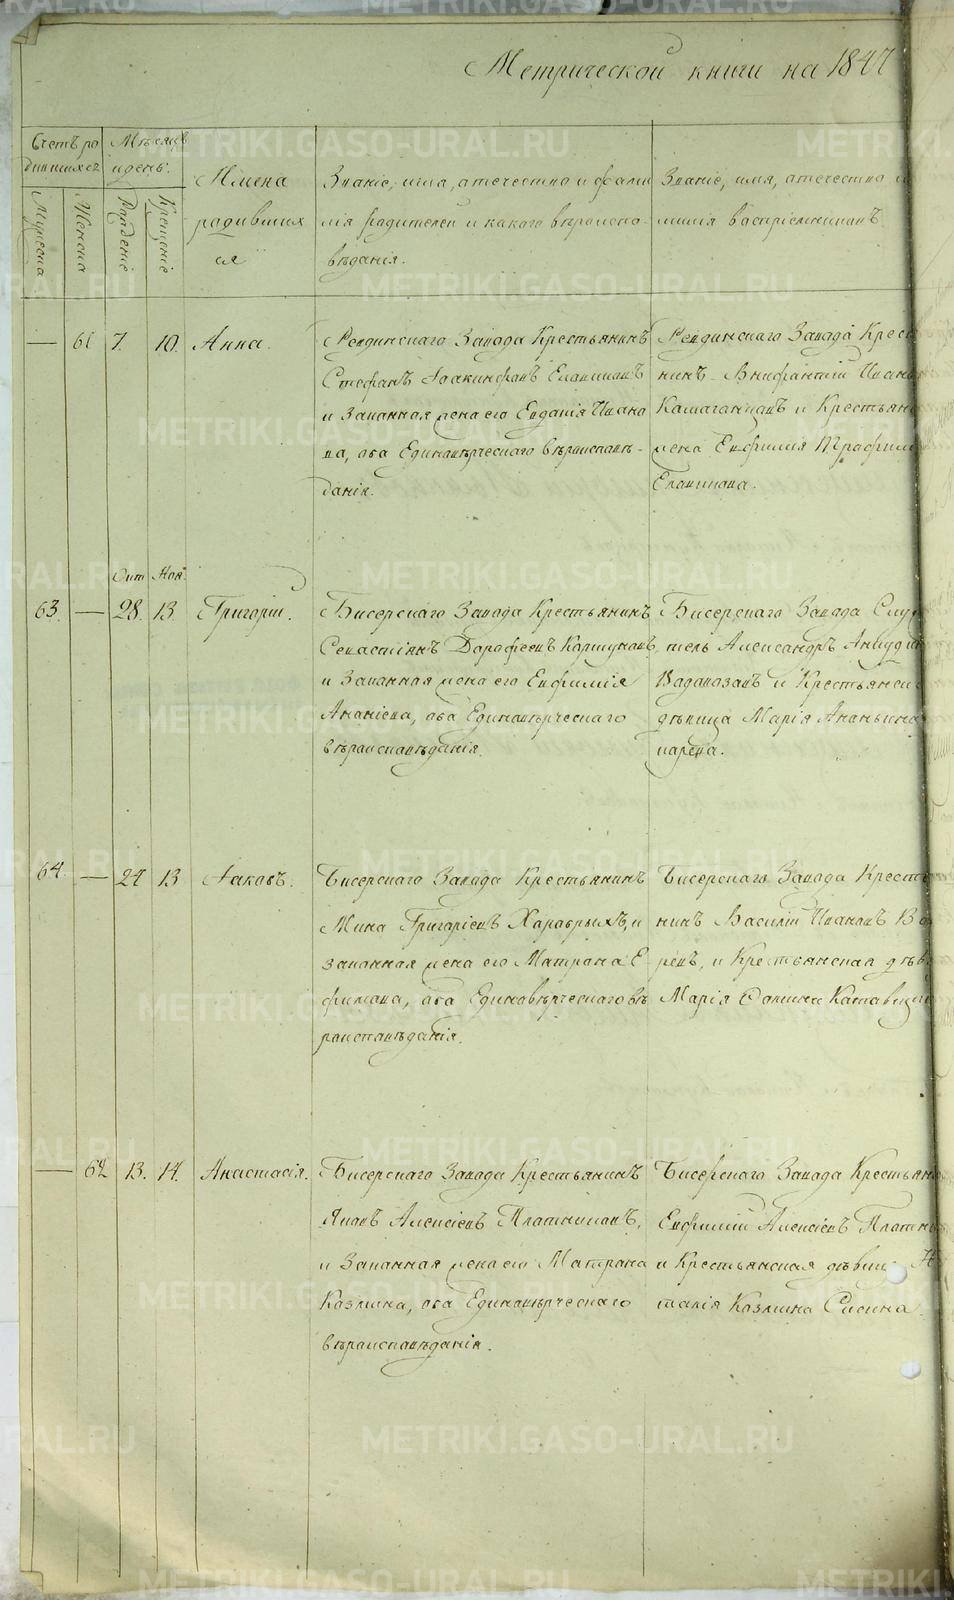 Метрической книги на 1847
Счетъ ро
дившихся
Мѣсяцъ
и день:
Мужеска
Женска
Рожденіе
Крещеніе
Имена
родивших
ся
Званіе, имя, отечество и фами
лія родителей и какого вѣроиспо-
вѣданія.
Званіе, имя, отечество и
милія воспріемниковъ
— 61 7. 10. Анна.
Ревдинскаго Завода Крестьянинъ
Стефанъ Іоакинфовъ
и Законная жена его Евдокія Ивано
ва, оба Единовѣрческаго вѣроисповѣ-
данія.
Ревдинскаго Завода Крес
нинъ Внифантій Ивано
и Крестьянс
жена Евфимія Трофим
Окт Ноя.
63. — 28. 13. Григорій.
Бисерскаго Завода Крестьянинъ
Севастіянъ Дорофеевъ Коршуновъ
и Законная жена его Евфимія
Ананіева, оба Единовѣрческаго
вѣроисповѣданія.
Бисерскаго Завода Слу
тель Александръ
Водовозовъ и Крестьянск
дѣвица Марія Ананьина
64. — 24 13 Іаковъ.
Бисерскаго Завода Крестьянинъ
Мина Григоріевъ Храбрыхъ, и
законная жена его Матрона Е
фимова, оба Единовѣрческаго вѣ
роисповѣданія.
Бисерскаго Завода Кресть
нинъ Василій Ивановъ
и Крестьянская дѣв
Марія Катавщик
— 62 13. 14. Анастасія.
Бисерскаго Завода Крестьянинъ
Яковъ Алексѣевъ Плотниковъ,
и Законная жена его Матрона
Козмина, оба Единовѣрческаго
вѣроисповѣданія.
Бисерскаго Завода Крестьян
Евфимій Алексѣевъ Плотн
и Крестьянская дѣвиц Н
талія Козмина Сисина
METRIKI.GASO-URAL.RU